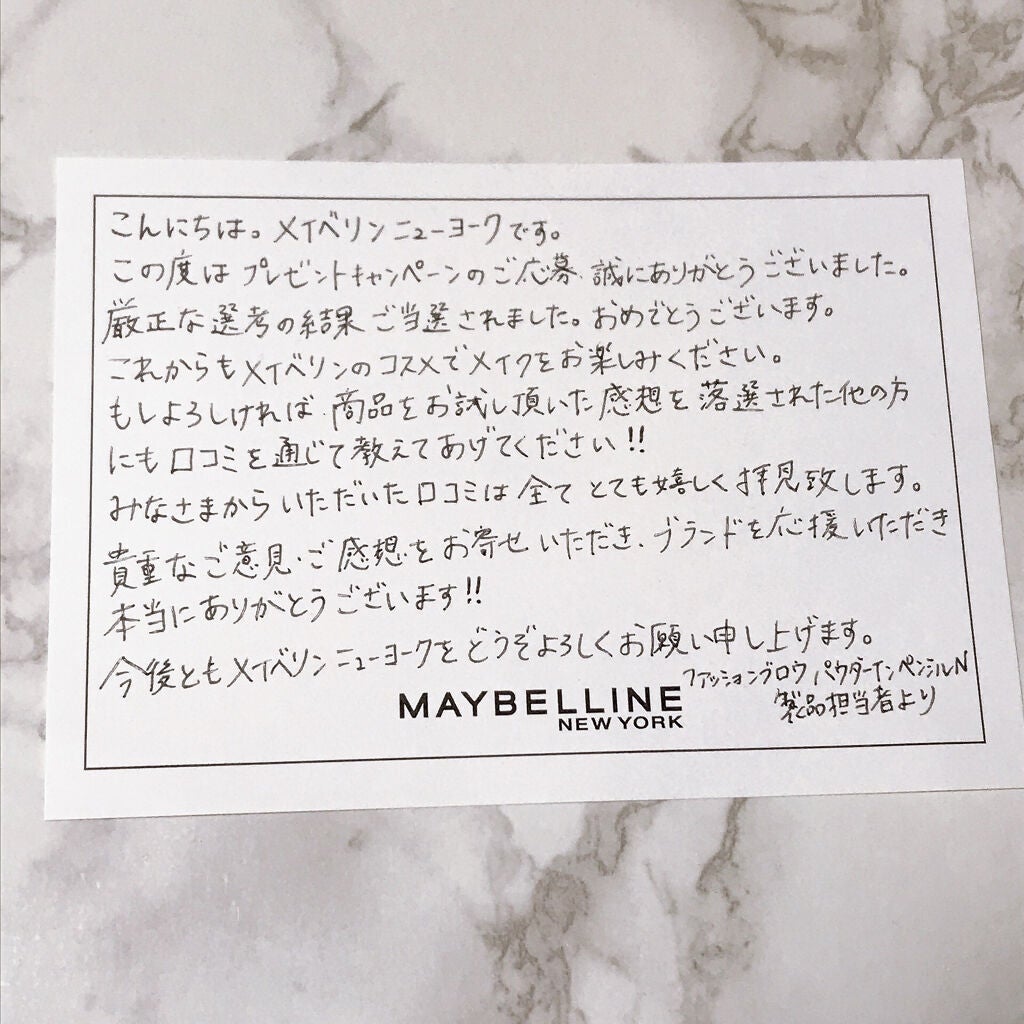 こんにちは。メイベリンニューヨークです。
この度はプレゼントキャンペーンのご応募、誠にありがとうございました。
厳正な選考の結果ご当選されました。おめでとうございます。
これからもメイベリンのコスメでメイクをお楽しみください。
もしよろしければ、商品をお試し頂いた感想を落選された他の方
にも口コミを通じて教えてあげてください!!
みなさまからいただいた口コミは全てとても嬉しく拝見致します。
貴重なご意見・ご感想をお寄せいただき、ブランドを応援いただき
本当にありがとうございます!!
今後ともメイベリンニューヨークをどうぞよろしくお願い申し上げます。
ファッションブロウパウダーインペンシルN
製品担当者より
MAYBELLINE
NEW YORK